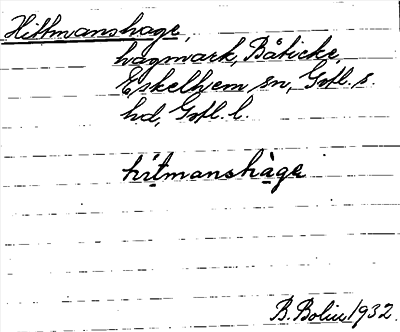 Hittmanshage,
hagmark, Båticke,
Eskelhem sn, Gotl. s.
hd, Gotl. l.
hìtmanshàge
B. Bolin 1932.